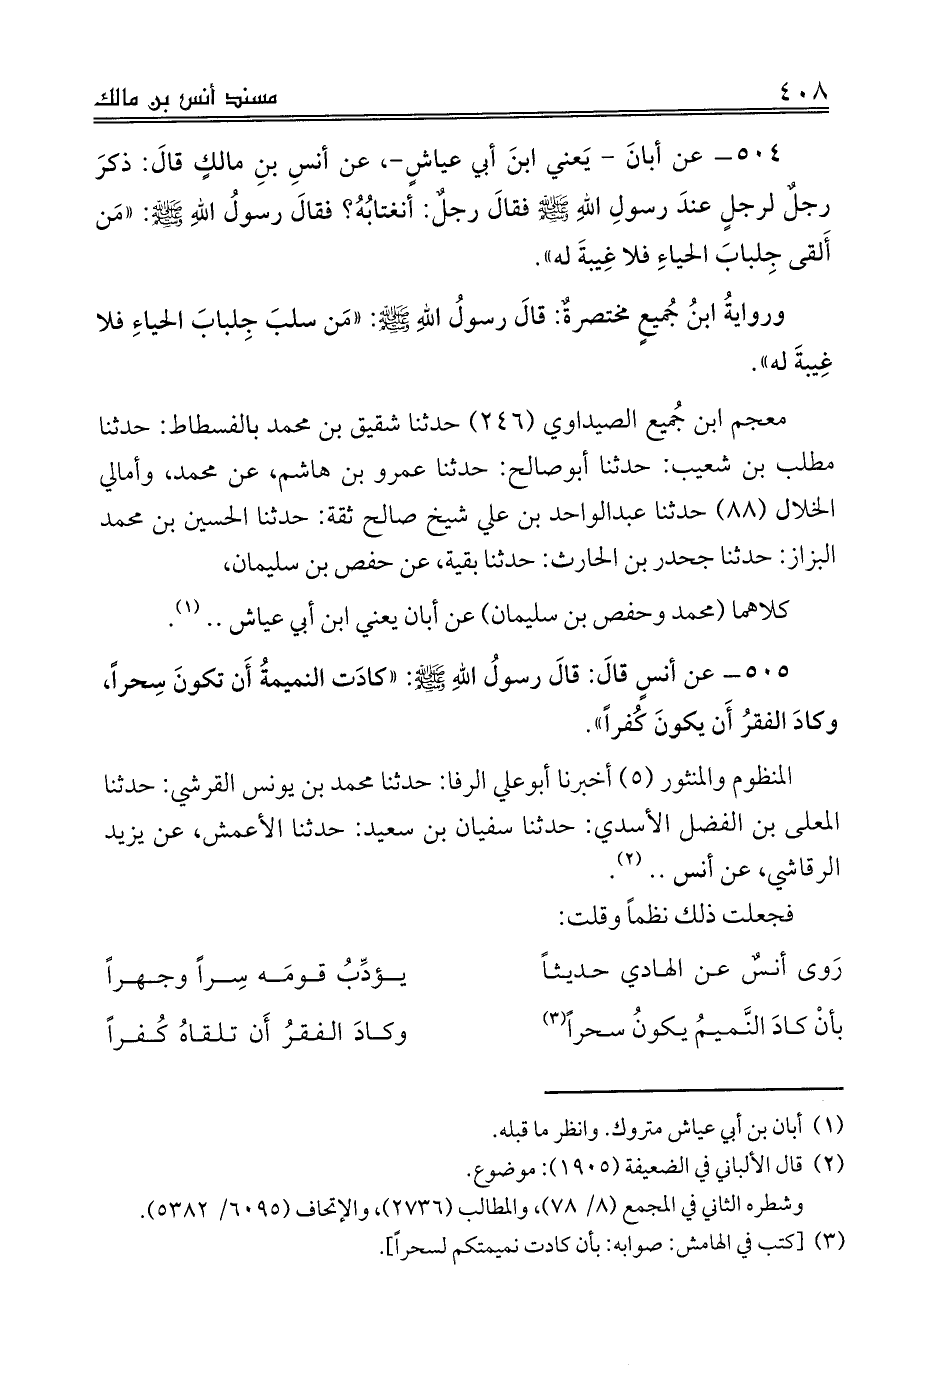 ٤٠٨
مسند أنس بن مالك
٥٠٤ـ عن أبانَ - يَعني ابنَ أبي عياشٍ-، عن أنسِ بنِ مالكٍ قالَ: ذكرَ
رجلٌ لرجلٍ عندَ رسولِ اللهِ ﷺ فقالَ رجلٌ: أنغتابُهُ؟ فقالَ رسولُ اللهِ ﷺ: «مَن
أَلقى جِلبابَ الحياءِ فلا غِيبةَ له».
وروايةُ ابنُ جُميعٍ مختصرةٌ: قالَ رسولُ اللهِ ﷺ: «مَن سلبَ جِلبابَ الحياءِ فلا
غِيبةَ له».
معجم ابن جُميع الصيداوي (٢٤٦) حدثنا شقيق بن محمد بالفسطاط: حدثنا
مطلب بن شعيب: حدثنا أبوصالح: حدثنا عمرو بن هاشم، عن محمد، وأمالي
الخلال (٨٨) حدثنا عبدالواحد بن علي شيخ صالح ثقة: حدثنا الحسين بن محمد
البزاز: حدثنا جحدر بن الحارث: حدثنا بقية، عن حفص بن سليمان،
كلاهما (محمد وحفص بن سليمان) عن أبان يعني ابن أبي عياش .. (١).
٥٠٥ـ عن أنسٍ قالَ: قالَ رسولُ اللهِ ﷺ: «كادَت النميمةُ أَن تكونَ سِحراً،
وكادَ الفقرُ أَن يكونَ كُفراً».
المنظوم والمنثور (٥) أخبرنا أبوعلي الرفا: حدثنا محمد بن يونس القرشي: حدثنا
المعلى بن الفضل الأسدي: حدثنا سفيان بن سعيد: حدثنا الأعمش، عن يزيد
الرقاشي، عن أنس .. (٢).
فجعلت ذلك نظماً وقلت:
رَوى أنسٌ عن الهادي حديثاً يؤدِّبُ قومَه سِراً وجهراً
بأنْ كادَ النَّميمُ يكونُ سحراً(٣) وكادَ الفقرُ أَن تلقاهُ كُفراً
(١) أبان بن أبي عياش متروك. وانظر ما قبله.
(٢) قال الألباني في الضعيفة (١٩٠٥): موضوع.
وشطره الثاني في المجمع (٨/ ٧٨)، والمطالب (٢٧٣٦)، والإتحاف (٦٠٩٥/ ٥٣٨٢).
(٣) [كتب في الهامش: صوابه: بأن كادت نميمتكم لسحراً].